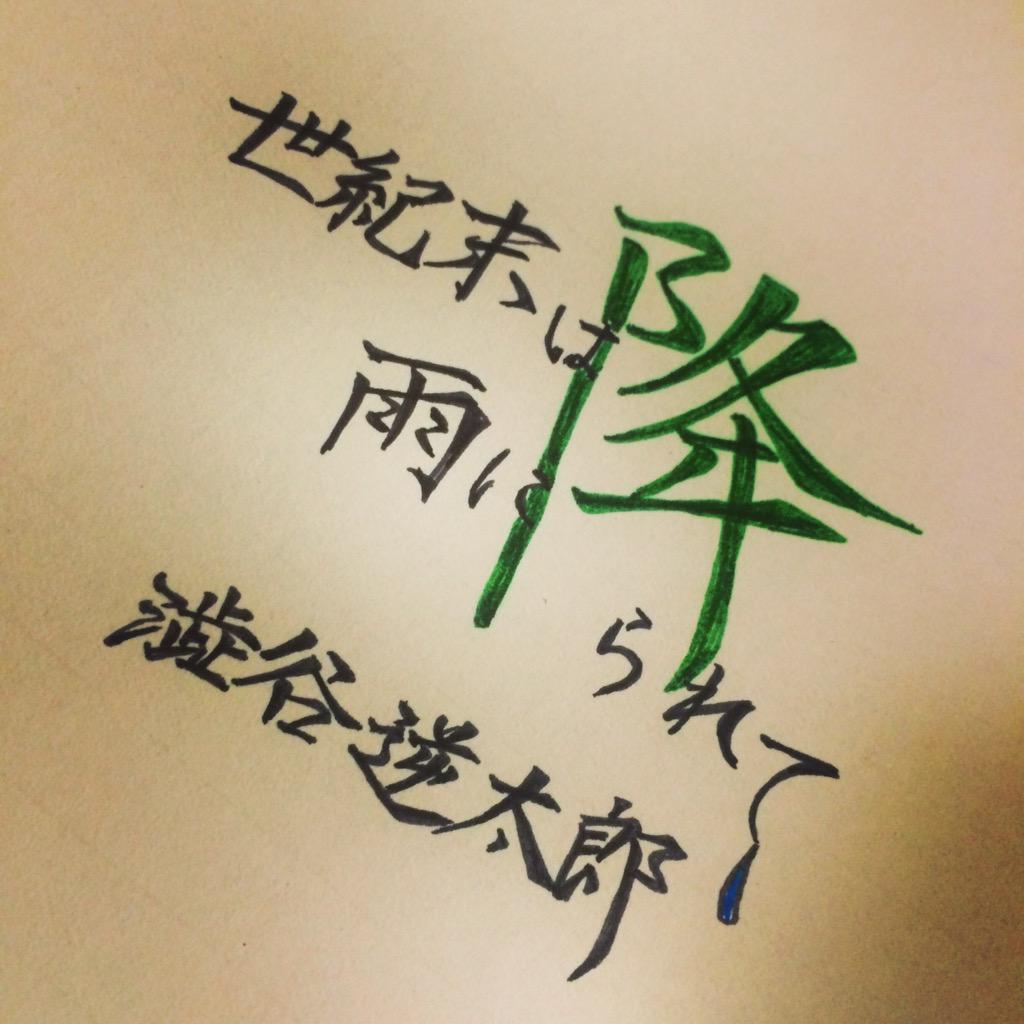 世紀末は
雨に
降られて
澁谷逆太郎